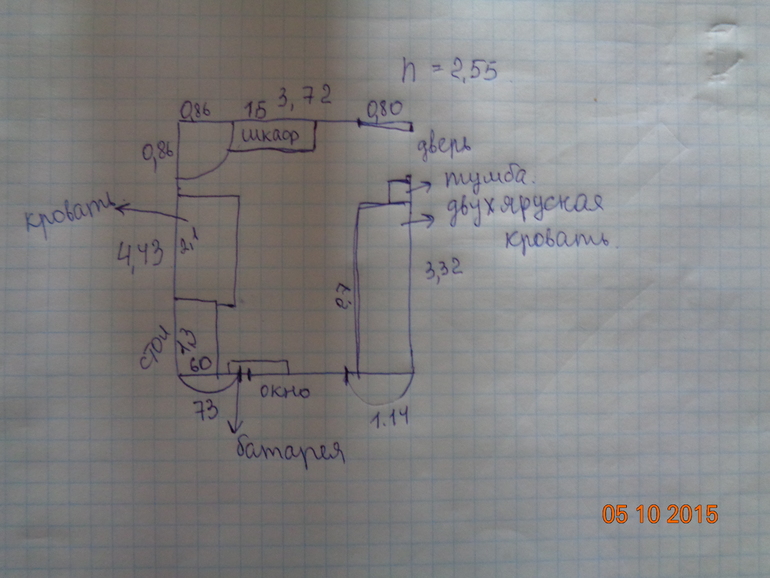 h = 2,55
0,86 15 3,72 0,80
шкаф
0,86
дверь
тумба.
двухярусная
кровать.
кровать
4,43
2,1
3,32
2,7
стол
1,3
60
окно
73
1.14
батарея
05 10 2015